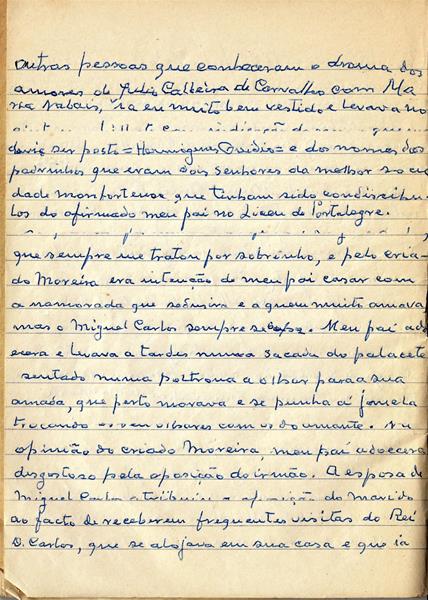 outras pessoas que conheceram o drama dos
amores de Julio Caldeira de Carvalho com Ma
ria Rabais, ia eu muito bem vestido e levava no
devia ser posto = Hermogenes Ovidio = e dos nomes dos
padrinhos que eram dois senhores da melhor socie
dade monfortense que tinham sido condiscipu-
los do afirmado meu pai no Liceu de Portalegre.
que sempre me tratou por sobrinho, e pelo cria-
do Moreira era intenção de meu pai casar com
a namorada que seduzira e a quem muito amava
mas o Miguel Carlos sempre se opoz. Meu pai ado
ecera e levava a tardes numa sacada do palacete
sentado numa poltrona a olhar para a sua
amada, que perto morava e se punha á janela
trocando olhares com os do amante. Na
opinião do criado Moreira, meu pai adoecera
desgostoso pela oposição do irmão. A esposa de
Miguel Carlos atribuiu a oposição do marido
ao facto de receberem frequentes visitas do Rei
D. Carlos, que se alojava em sua casa e que ia